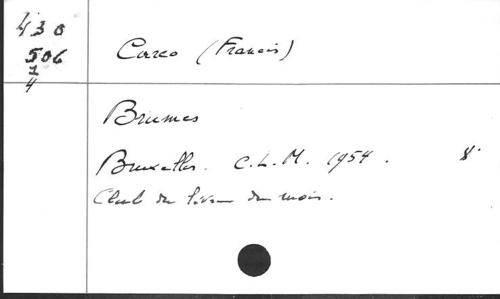 430
506
1
4
Carco (Francis)
Brumes
Bruxelles. C.L.M. 1954. 8°
Club du livre du mois.